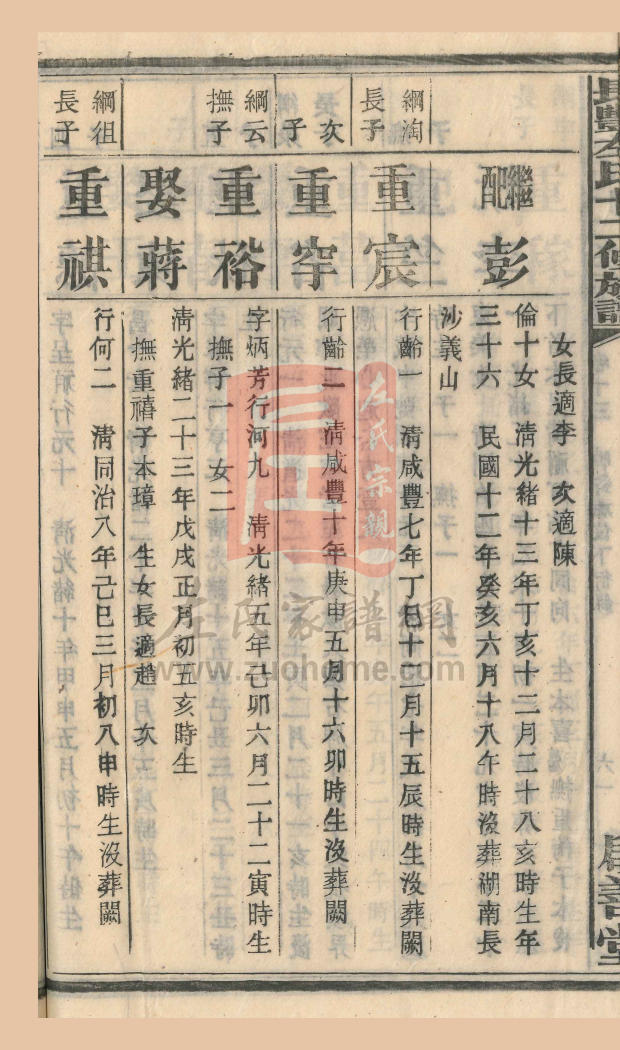 長豐左氏十二修族譜
六一
女長適李　次適陳
繼配彭
倫十女　清光緒十三年丁亥十二月二十八亥時生年
三十六　民國十二年癸亥六月十八午時沒葬湖南長
沙義山
綱淘
長子
重宸
行齡一　清咸豐七年丁巳十二月十五辰時生沒葬闕
次
子
重窂
行齡二　清咸豐十年庚申五月十六卯時生沒葬闕
綱云
撫子
重裕
字炳芳行河九　清光緒五年己卯六月二十二寅時生
撫子一　女二
娶蔣
清光緒二十三年戊戌正月初五亥時生
撫重禧子本璋　生女長適趙　次
綱徂
長子
重祺
行何二　清同治八年己巳三月初八申時生沒葬闕
左氏宗親
左氏家譜網
www.zuohome.com